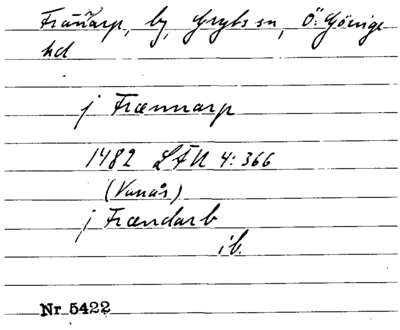 Frännarp, by, Gryts sn, Ö. Göinge
hd
j Frœnnarp
1482 LÄU 4:366
(Vanås)
j Frœndarb
ib.
Nr 5422